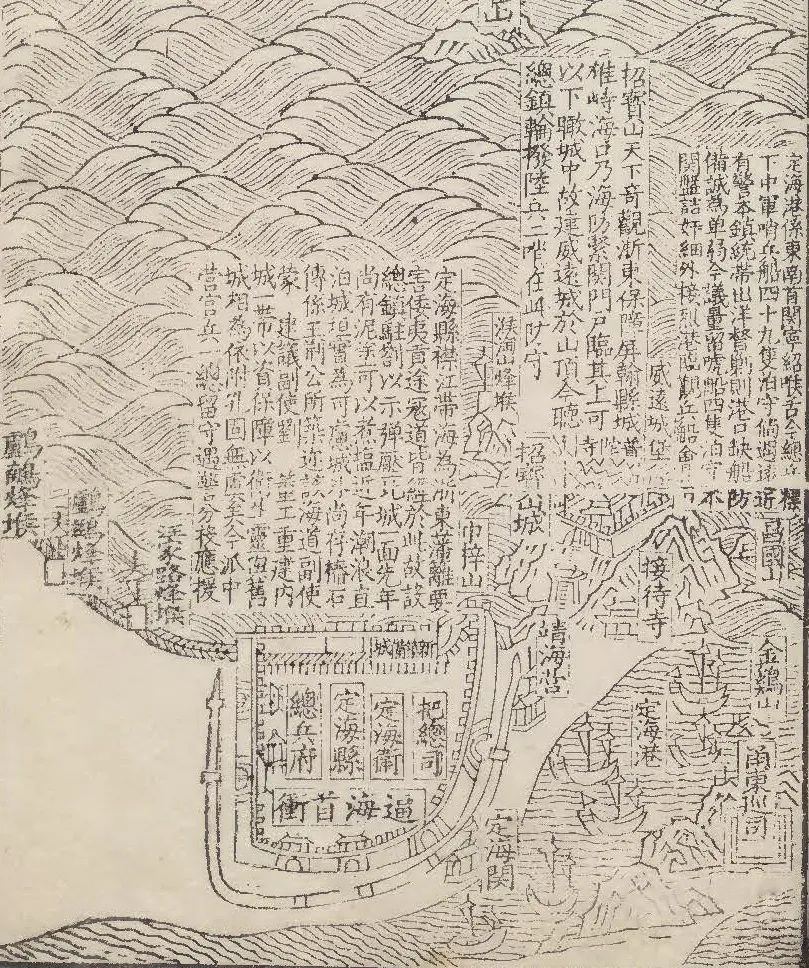 山
定海港係東南首關寧紹喉舌今總兵
下中軍哨兵船四十九隻泊守倘遇遠
有警本鎮統帶出洋督勦則港口缺船防
備誠為單弱今議量留虎船四隻泊守不
關盤詰奸細外接烈港臨觀兵船會
招寶山天下奇觀浙東保障屏翰縣城普
雄峙海口乃海防緊關門戶臨其上可
以下瞰城中故建威遠城於山頂今聽
總鎮輪撥陸兵二哨在此防守
威遠城堡
近
昌國山
招寶山城
接待寺
巾梓山
靖海營
金鷄山
定海港
甬東巡司
定海關
定海縣襟江帶海為浙東藩籬要
害倭夷貢途寇道皆經於此故設
總鎮駐劄以示彈壓北城一面先年
尚有泥塗可以煮鹽近年潮浪直
泊城垣實為可慮城外尚存樁石
傳係王荊公所築近該海道副使
蒙 建議副使劉 鼎工重建內
城一帶以省保障以衛生靈面舊
城相為依附孔固無虞至今派中
營官兵一總留守遇警分投應援
汪家路烽堠
鸕鶿烽堠
新築備城
把總司
定海衛
定海縣
總兵府
逼海首衝